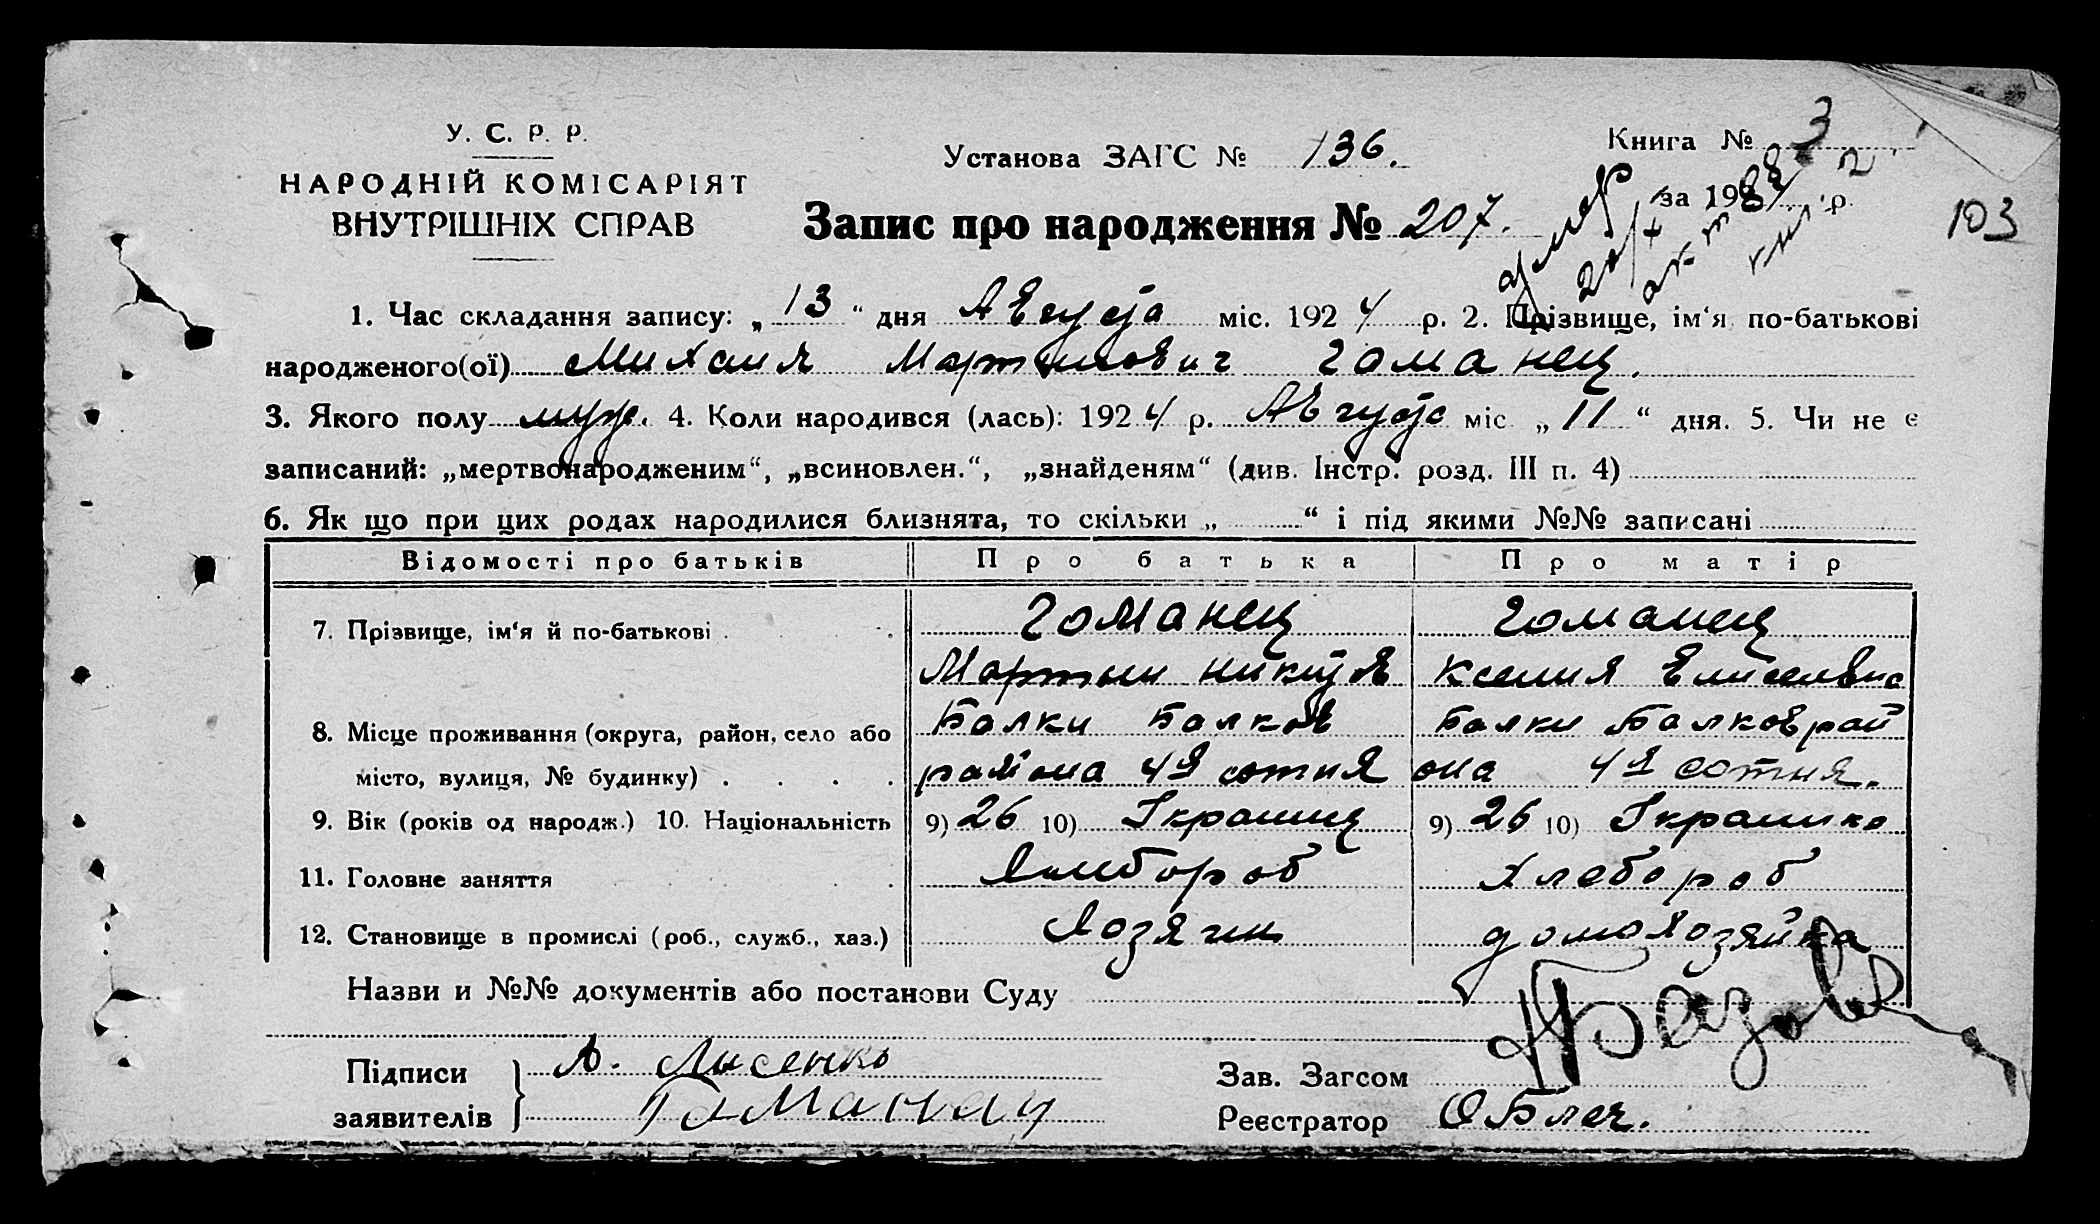 У. С. Р. Р.
НАРОДНІЙ КОМІСАРІЯТ
ВНУТРІШНІХ СПРАВ
Установа ЗАГС № 136.
Книга № 3
за 192 р.
Запис про народження № 207.
103
умер
акт
1. Час складання запису: „ 13 “ дня Августа міс. 1924 р. 2. Прізвище, ім‘я по-батькові
народженого(ої) Михаил Мартынович Гоманец.
3. Якого полу муж. 4. Коли народився (лась): 1924 р. Августа міс „ 11 “ дня. 5. Чи не є
записаний: „мертвонародженим“, „всиновлен.“, „знайденям“ (див. Інстр. розд. III п. 4)
6. Як що при цих родах народилися близнята, то скільки „ “ і під якими №№ записані
Відомості про батьків Про батька Про матір
7. Прізвище, ім‘я й по-батькові Гоманец Гоманец
Мартын Ксения
8. Місце проживання (округа, район, село або Балки Балков Балки Балков рай
місто, вулиця, № будинку) района 4я сотня она 4я сотня.
9. Вік (років од народж.) 10. Національність 9) 26 10) Украинец 9) 26 10) Украинка
11. Головне заняття Хлебороб Хлебороб
12. Становище в промислі (роб., служб., хаз.) Хозяин домохозяйка
Назви и №№ документів або постанови Суду
Підписи А. Лысенко Зав. Загсом
заявителів Реєстратор